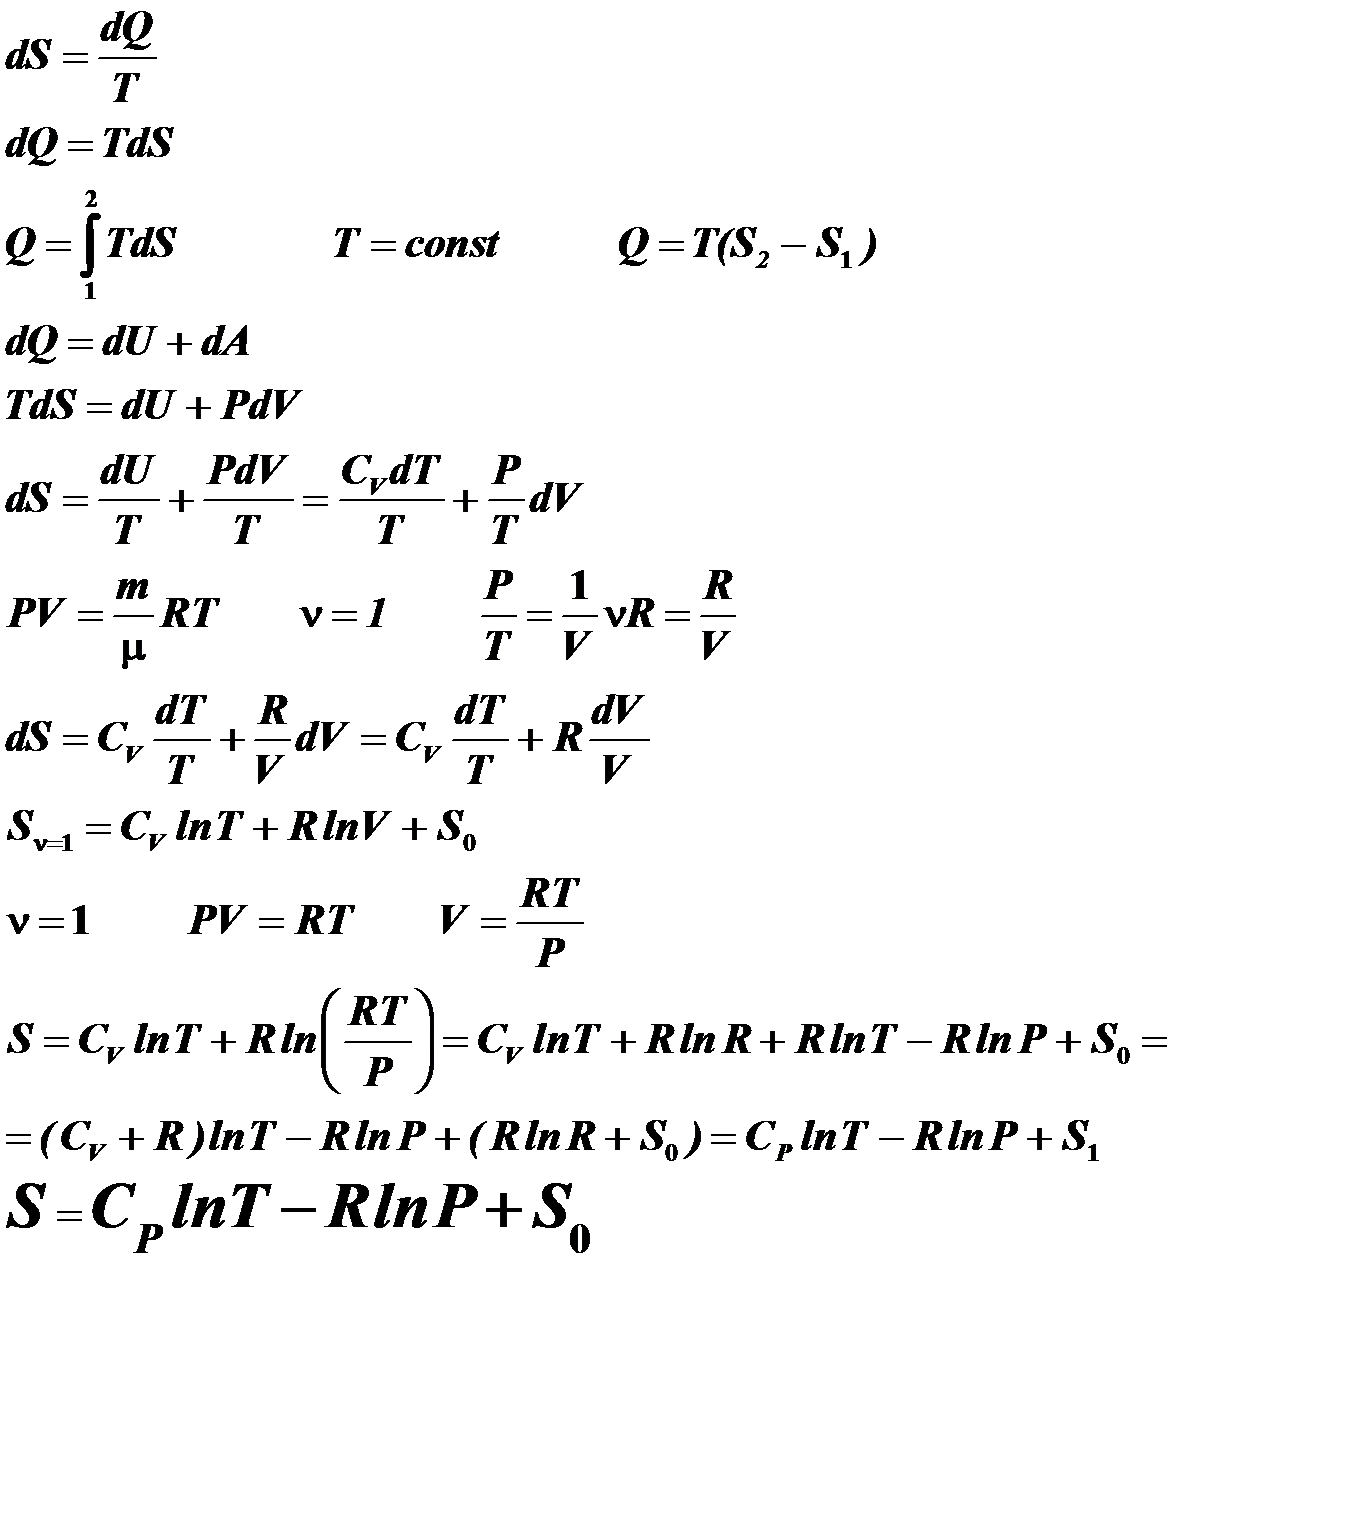 dS = dQ/T
dQ = TdS
Q = ∫₁² TdS T = const Q = T(S₂ − S₁)
dQ = dU + dA
TdS = dU + PdV
dS = dU/T + PdV/T = C_V dT/T + P/T dV
PV = m/μ RT ν = 1 P/T = 1/V νR = R/V
dS = C_V dT/T + R/V dV = C_V dT/T + R dV/V
S_{ν=1} = C_V lnT + R lnV + S₀
ν = 1 PV = RT V = RT/P
S = C_V lnT + R ln(RT/P) = C_V lnT + R lnR + R lnT − R lnP + S₀ =
= (C_V + R)lnT − R lnP + (R lnR + S₀) = C_P lnT − R lnP + S₁
S = C_P lnT − R lnP + S₀